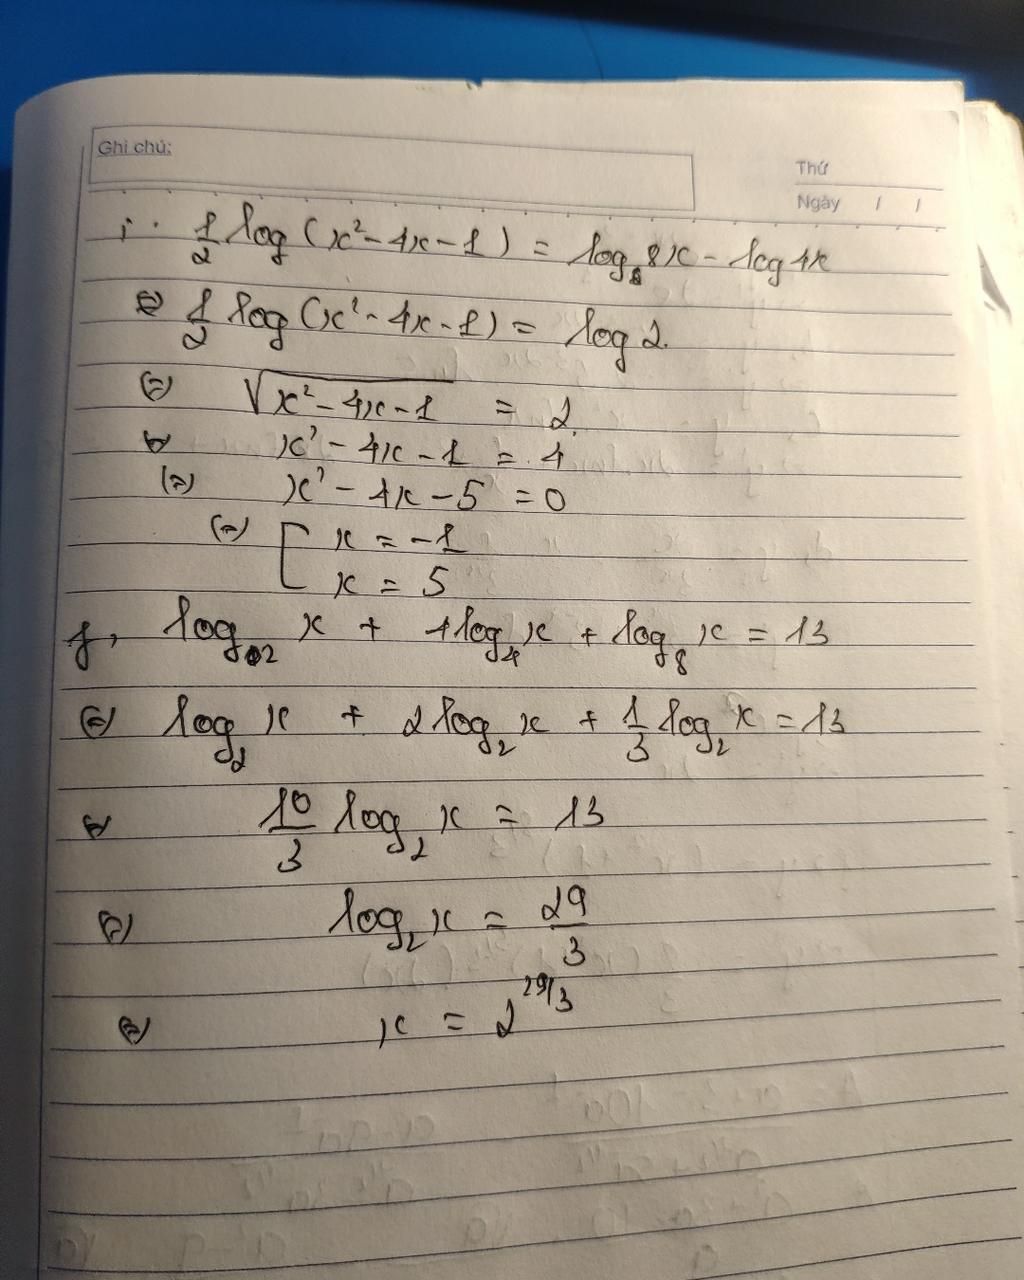 Ghi chú:
Thứ
Ngày / /
i. 1/2 log (x² - 4x - 1) = log 8x - log 4x
⇔ 1/2 log (x² - 4x - 1) = log 2.
⇔ √(x² - 4x - 1) = 2.
⇔ x² - 4x - 1 = 4
⇔ x² - 4x - 5 = 0
⇔ [ x = -1
x = 5
j, log₂ x + 4log₄ x + log₈ x = 13
⇔ log₂ x + 2log₂ x + 1/3 log₂ x = 13
⇔ 10/3 log₂ x = 13
⇔ log₂ x = 29/3
⇔ x = 2^29/3